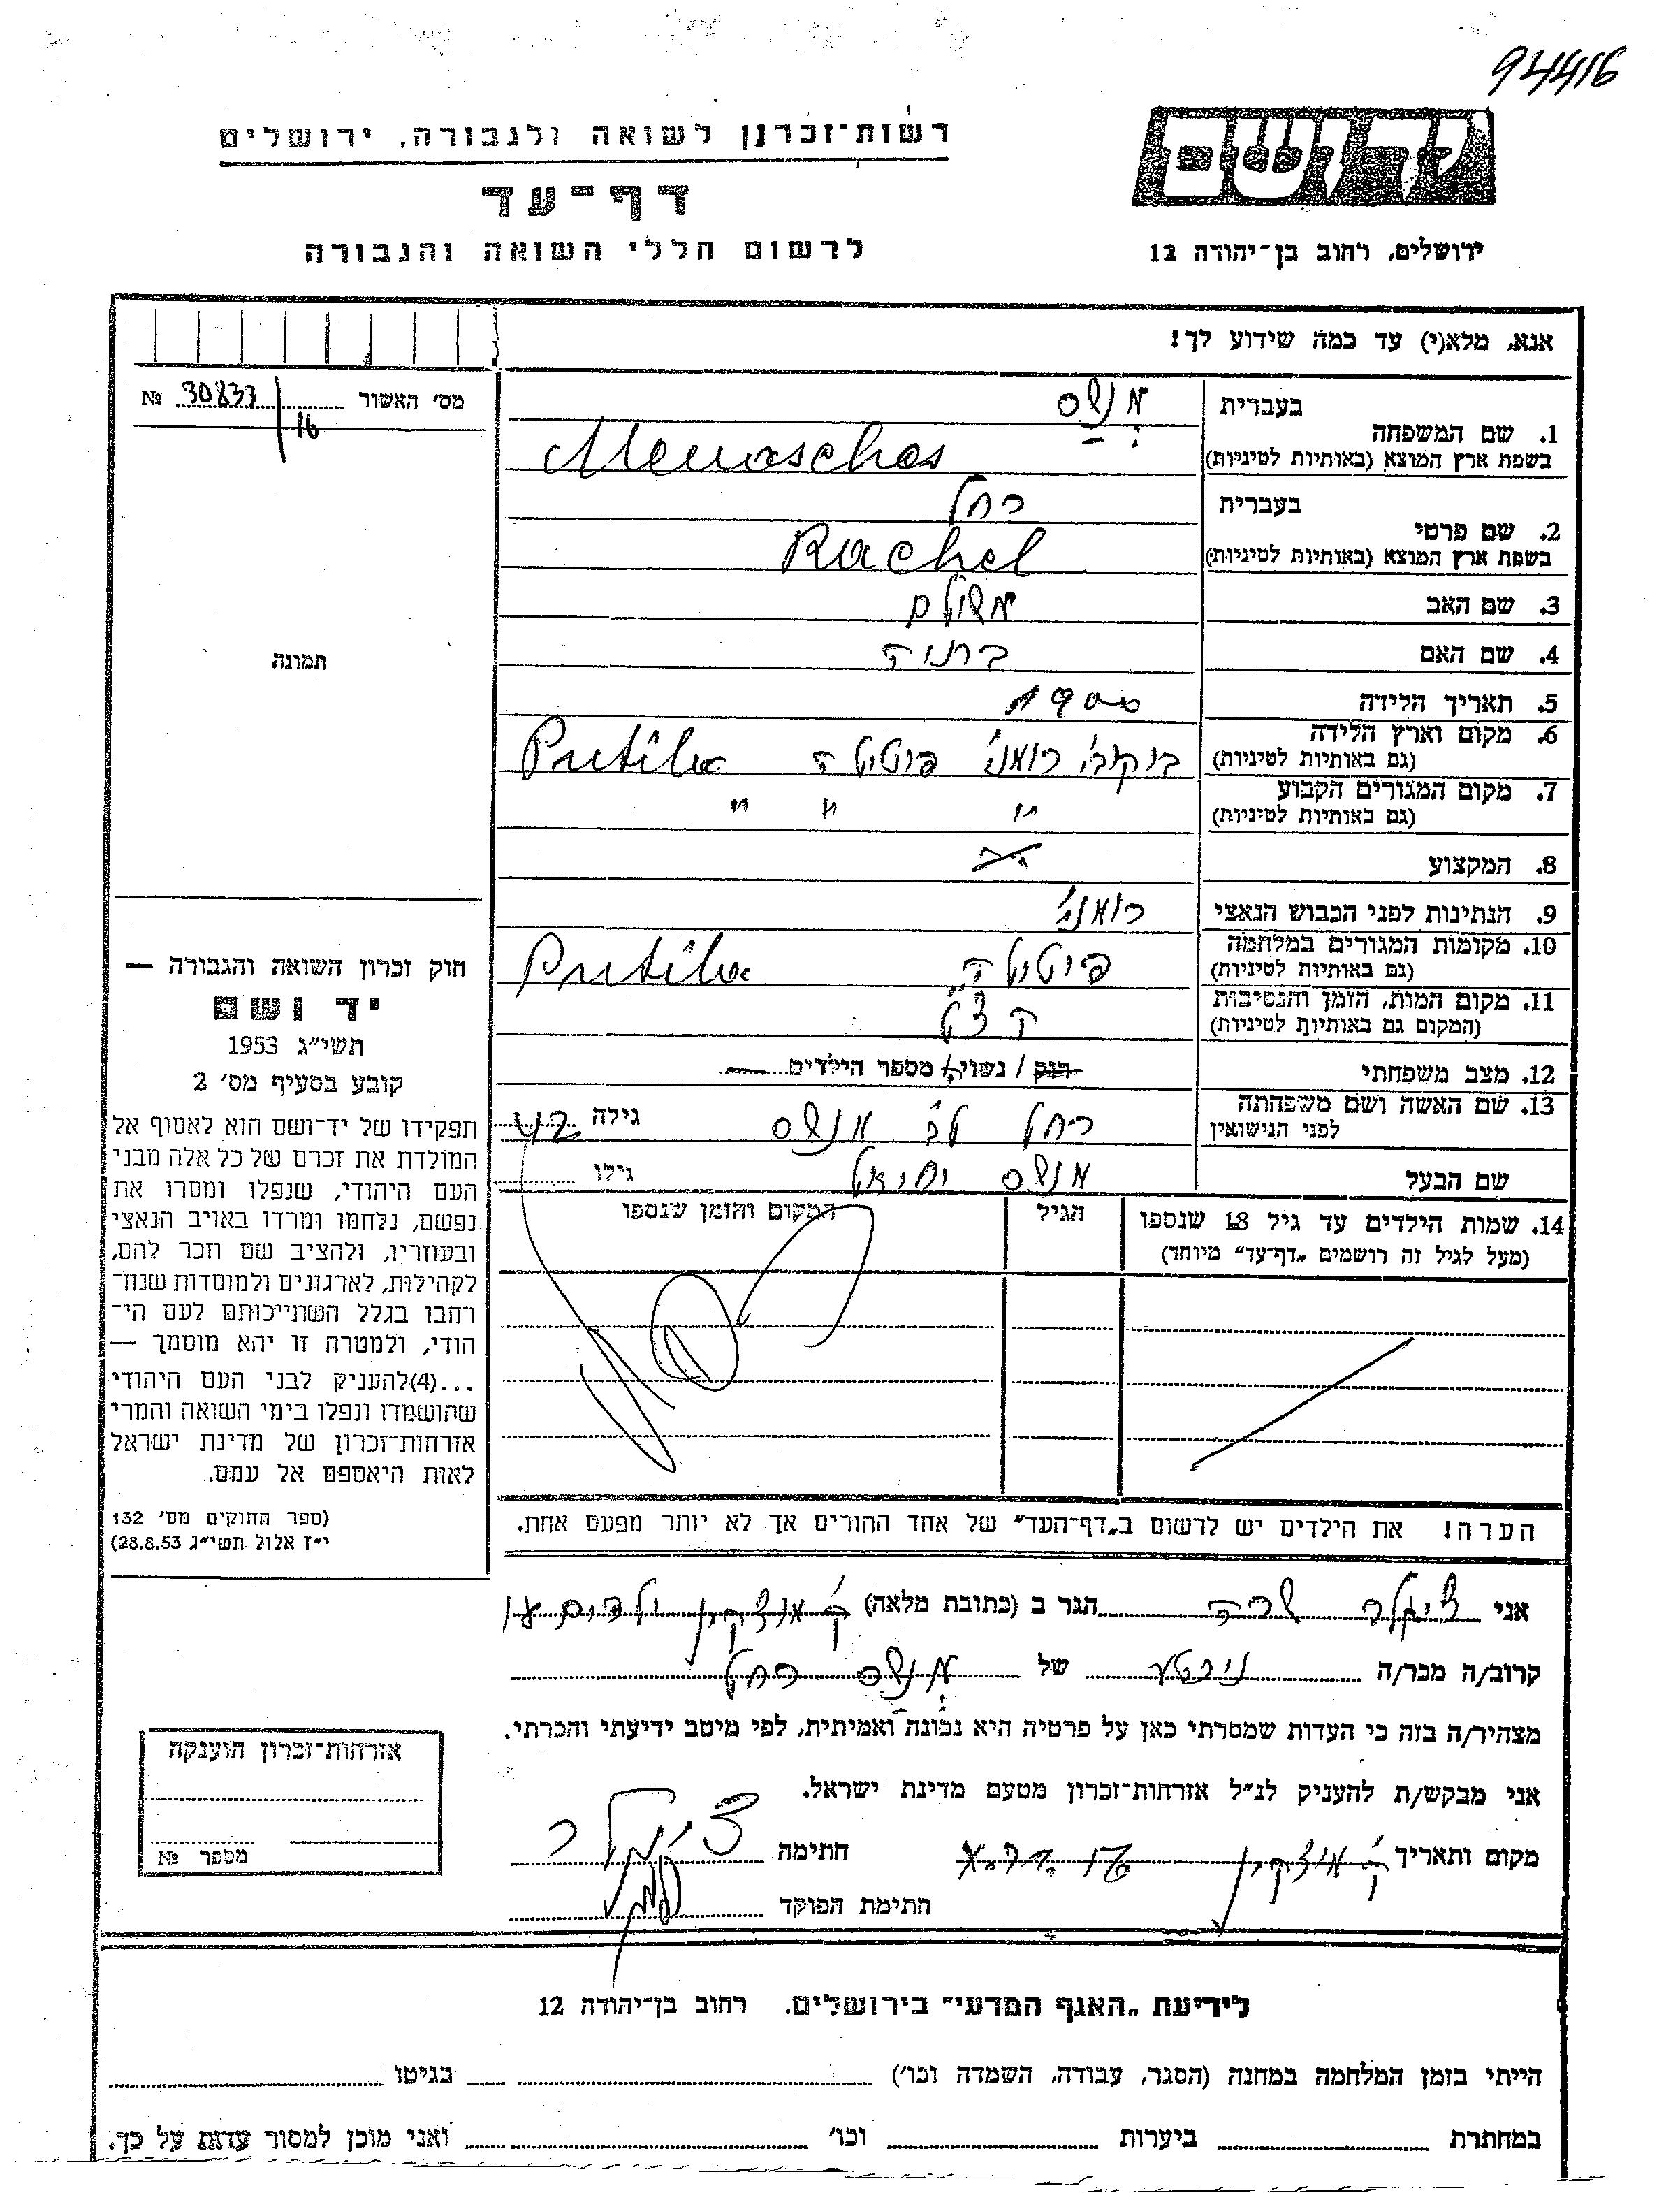 94416
רשות־זכרון לשואה ולגבורה, ירושלים
דף־עד
לרשום חללי השואה והגבורה
יד ושם
ירושלים, רחוב בן־יהודה 12
אנא, מלא(י) עד כמה שידוע לך!
מס' האשור 30833/16 №
תמונה
1. שם המשפחה
בעברית מנשס
בשפת ארץ המוצא (באותיות לטיניות) Menasches
2. שם פרטי
בעברית רחל
בשפת ארץ המוצא (באותיות לטיניות) Rachel
3. שם האב משולם
4. שם האם ברוניה
5. תאריך הלידה 1900
6. מקום וארץ הלידה
(גם באותיות לטיניות) בוקובי' רומני' פוטילה Putila
7. מקום המגורים הקבוע
(גם באותיות לטיניות) " " "
8. המקצוע
9. הנתינות לפני הכבוש הנאצי רומני'
10. מקומות המגורים במלחמה
(גם באותיות לטיניות) פוטילה Putila
11. מקום המות, הזמן והנסיבות
(המקום גם באותיות לטיניות)
12. מצב משפחתי רווק / נשוי/ מספר הילדים
13. שם האשה ושם משפחתה
לפני הנישואין רחל לב' מנשס גילה 42
שם הבעל מנשס יחיאל גילו
14. שמות הילדים עד גיל 18 שנספו
(מעל לגיל זה רושמים „דף־עד" מיוחד)
הגיל
המקום והזמן שנספו
הערה! את הילדים יש לרשום ב„דף־העד" של אחד ההורים אך לא יותר מפעם אחת.
חוק זכרון השואה והגבורה —
יד ושם
תשי"ג 1953
קובע בסעיף מס' 2
תפקידו של יד־ושם הוא לאסוף אל
המולדת את זכרם של כל אלה מבני
העם היהודי, שנפלו ומסרו את
נפשם, נלחמו ומרדו באויב הנאצי
ובעוזריו, ולהציב שם וזכר להם,
לקהילות, לארגונים ולמוסדות שנח־
רבו בגלל השתייכותם לעם הי־
הודי, ולמטרה זו יהא מוסמך —
...(4)להעניק לבני העם היהודי
שהושמדו ונפלו בימי השואה והמרי
אזרחות־זכרון של מדינת ישראל
לאות היאספם אל עמם.
(ספר החוקים מס' 132
י"ז אלול תשי"ג 28.8.53)
אני ציגלר שרה הגר ב (כתובת מלאה) ק' מוצקין
קרוב/ה מכר/ה של מנשס רחל
מצהיר/ה בזה כי העדות שמסרתי כאן על פרטיה היא נכונה ואמיתית, לפי מיטב ידיעתי והכרתי.
אני מבקש/ת להעניק לנ"ל אזרחות־זכרון מטעם מדינת ישראל.
מקום ותאריך ק' מוצקין חתימה ציגלר
חתימת הפוקד
אזרחות־זכרון הוענקה
מספר №
לידיעת „האגף המדעי" בירושלים. רחוב בן־יהודה 12
הייתי בזמן המלחמה במחנה (הסגר, עבודה, השמדה וכו') בגיטו
במחתרת ביערות וכו' ואני מוכן למסור עדות על כך.